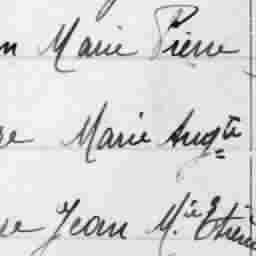 n Marie Pierre
re Marie Augte
re Jean M.ie Etien